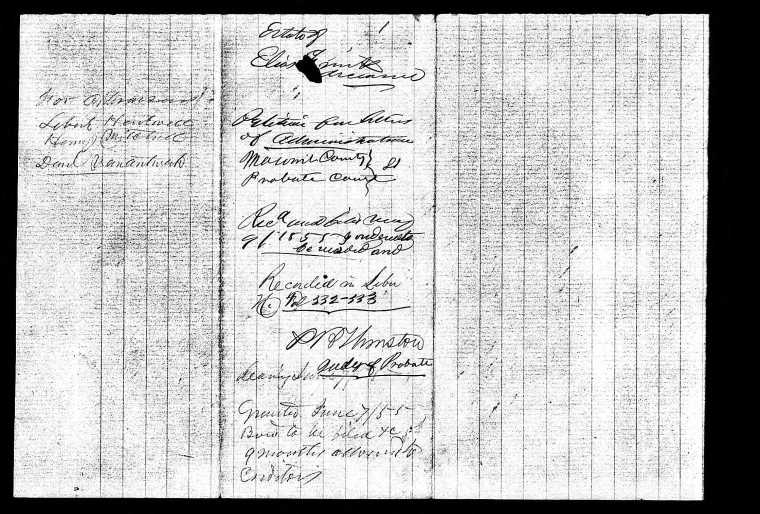 Estate of
Elias Smith
deceased
Petition for Letters
of Administration
Macomb County } ss
Probate Court }
Recd and filed May
9/1855 & ordered to
be issued and
Recorded in Liber
H. Fol 332-333
P. H. Thurston
Judge of Probate
Hearing June
Granted June 7/55
Bond to be filed &c
9 months allowed to
Creditors
For
Hartwell
Henry Mitchell
Vanantwerk